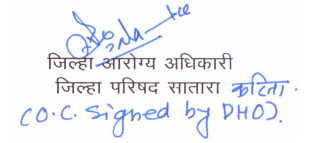 जिल्हा आरोग्य अधिकारी
जिल्हा परिषद सातारा करिता.
(O.C. signed by DHO).